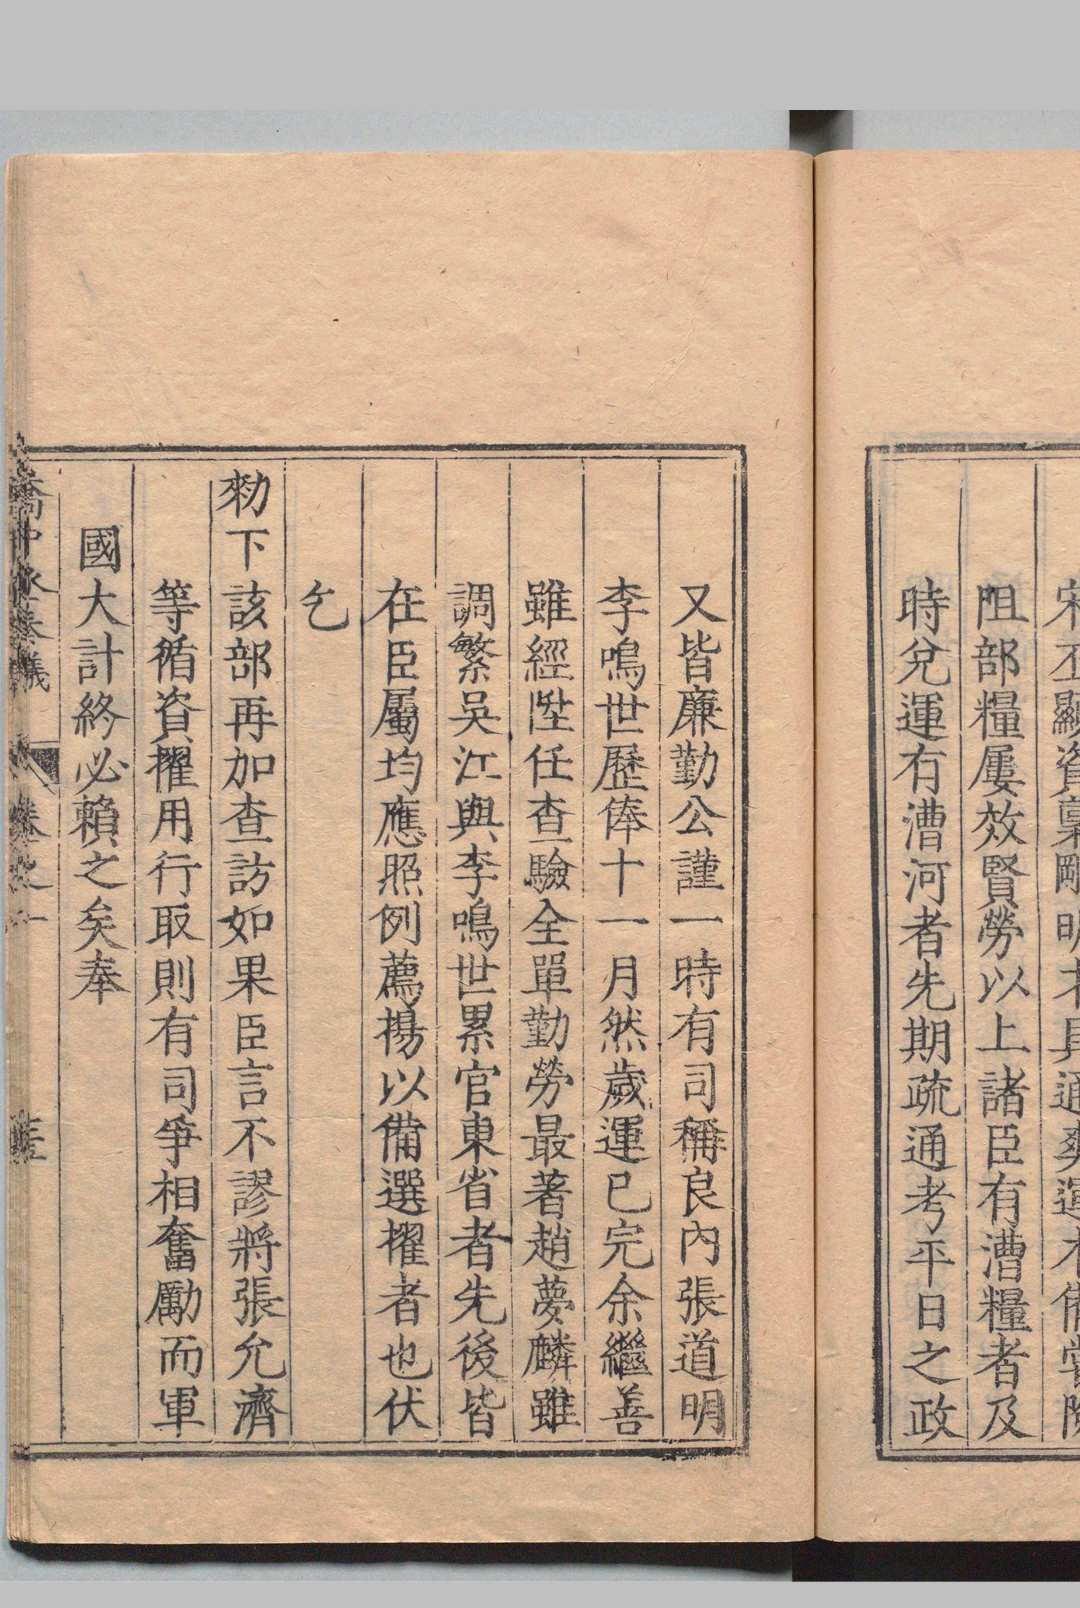 宋丕顯資稟剛明才具通爽運
阻部糧屢效賢勞以上諸臣有漕糧者及
時兌運有漕河者先期疏通考平日之政
又皆廉勤公謹一時有司稱良內張道明
李鳴世歷俸十一月然歲運已完余繼善
雖經陞任查驗全單勤勞最著趙夢麟雖
調繁吳江與李鳴世累官東省者先後皆
在臣屬均應照例薦揚以備選擢者也伏
乞
勑下該部再加查訪如果臣言不謬將張允濟
等循資擢用行取則有司爭相奮勵而軍
國大計終必賴之矣奉
卷之一